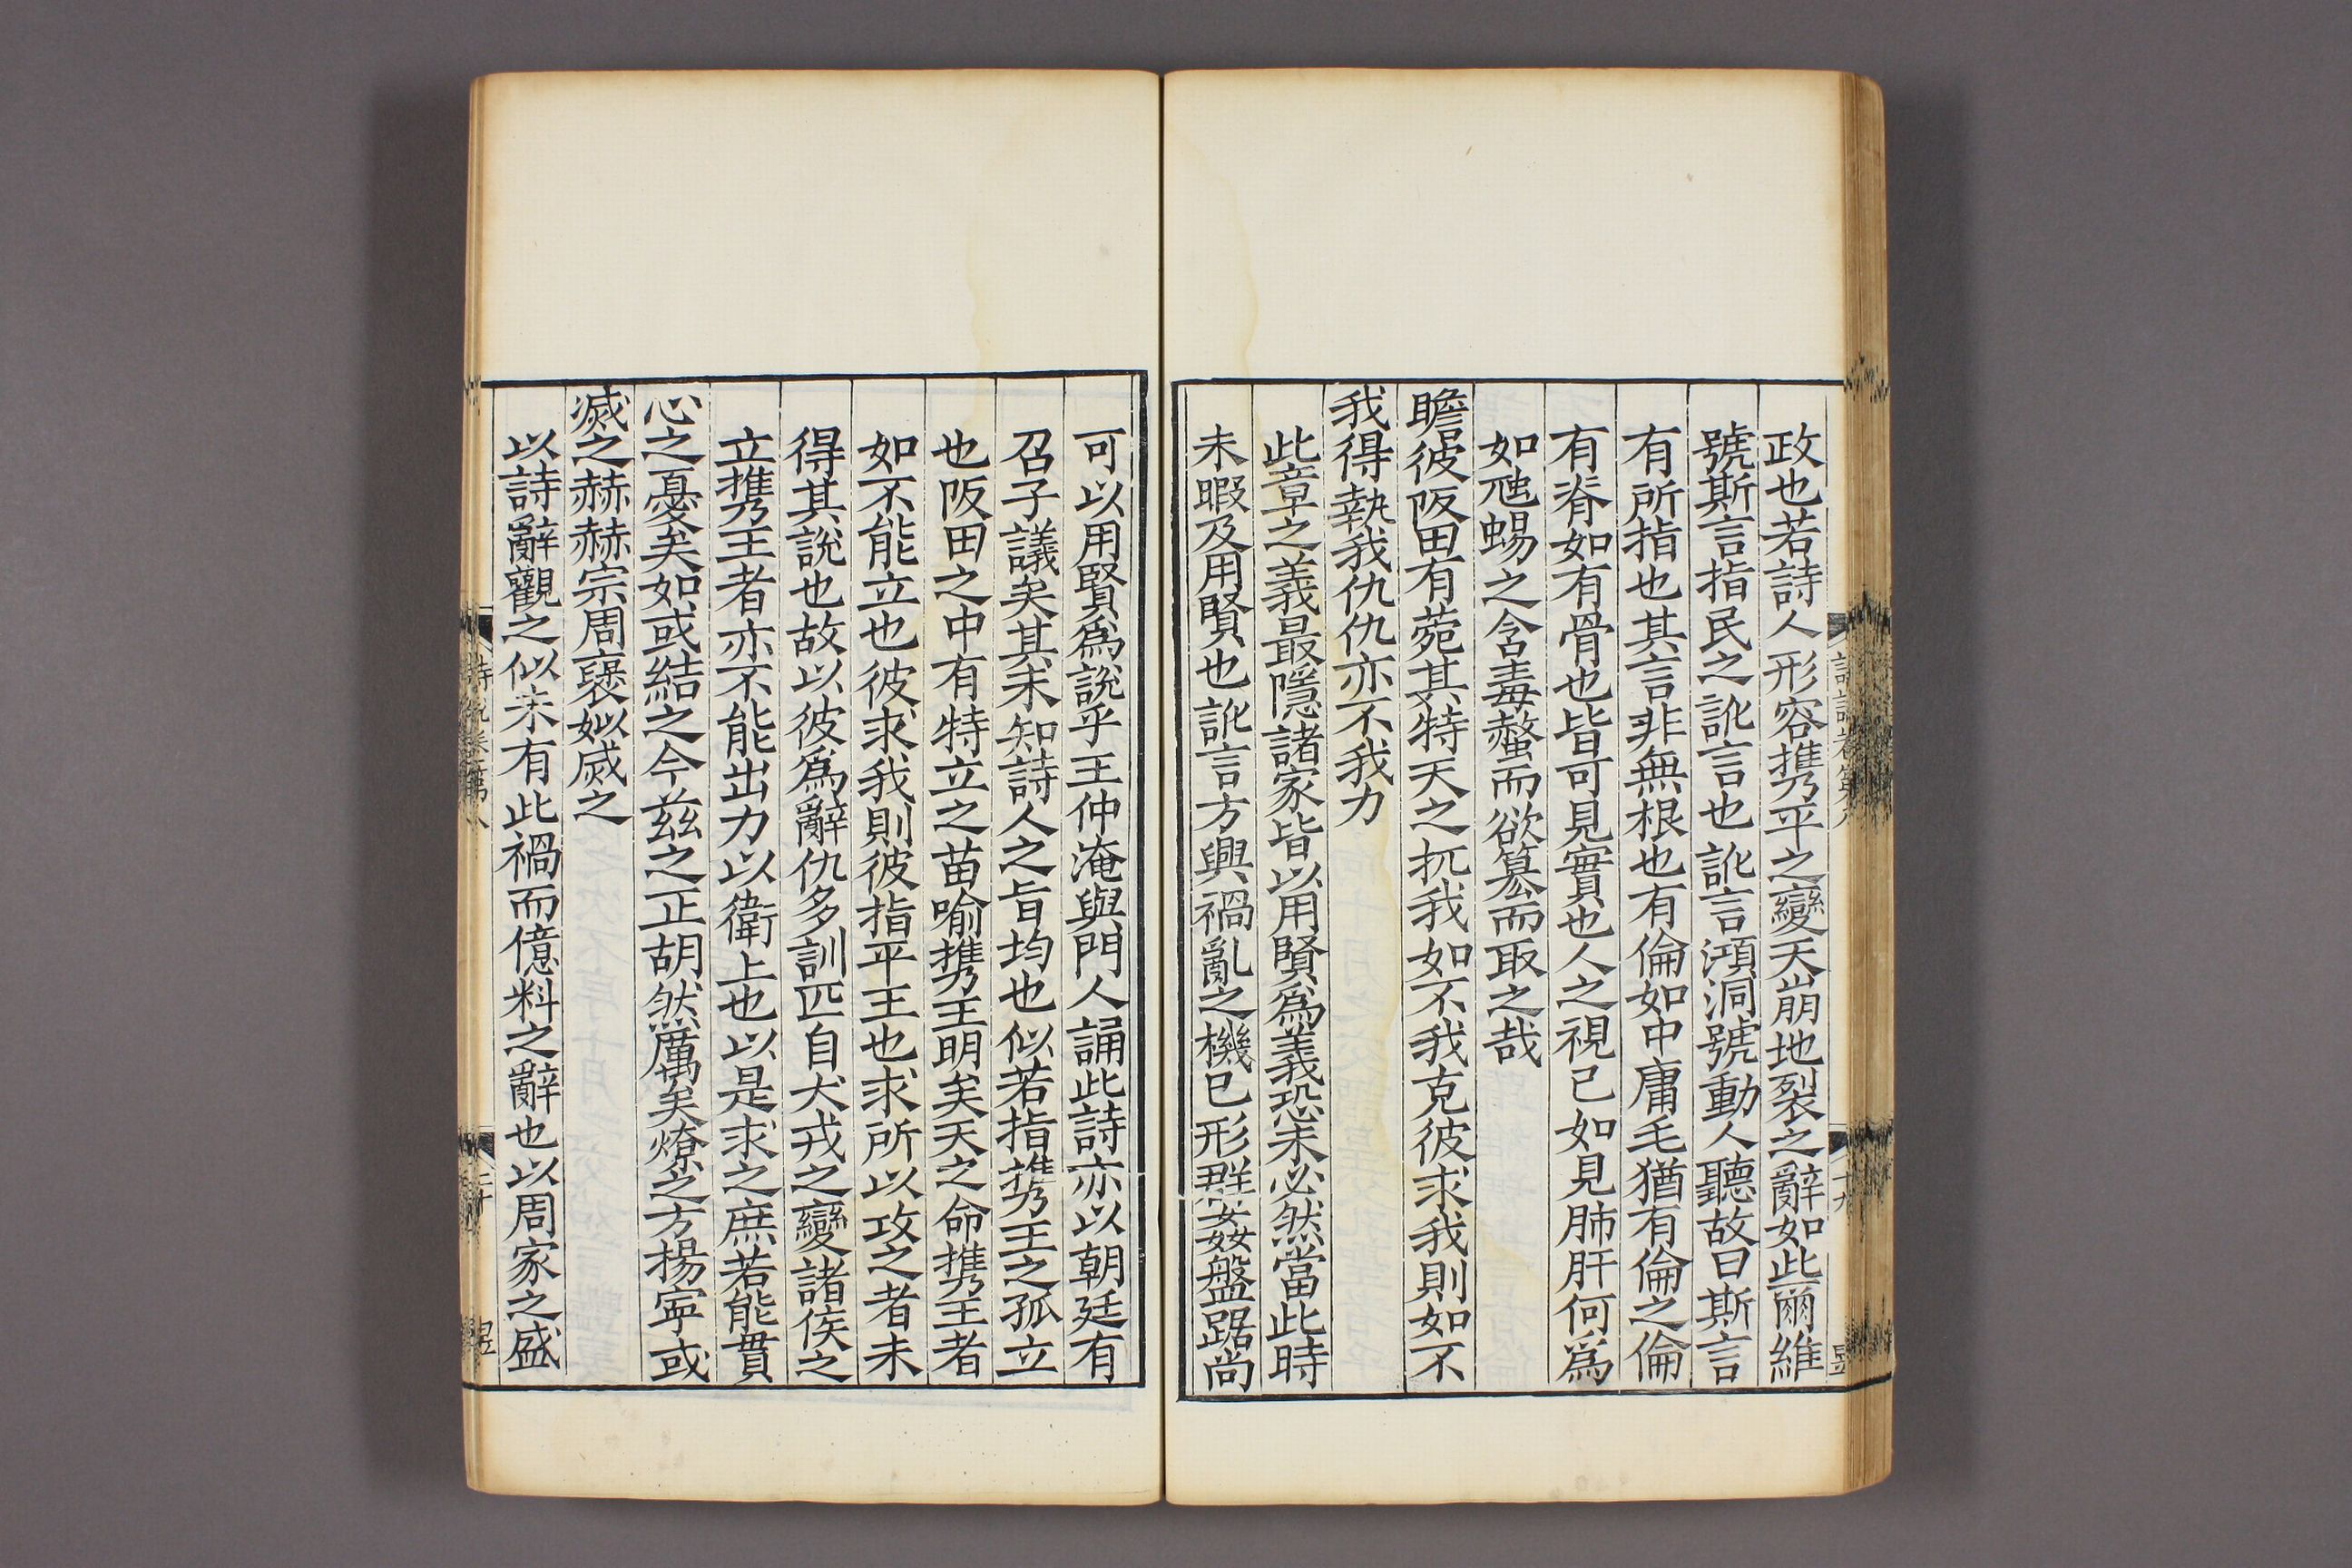 政也若詩人形容攜平之變天崩地裂之辭如此爾維
號斯言指民之訛言也訛言澒洞號動人聽故曰斯言
有所指也其言非無根也有倫如中庸毛猶有倫之倫
有脊如有骨也皆可見實也人之視己如見肺肝何爲
如虺蜴之含毒螫而欲篡而取之哉
瞻彼阪田有菀其特天之扤我如不我克彼求我則如不
我得執我仇仇亦不我力
此章之義最隱諸家皆以用賢爲義恐未必然當此時
未暇及用賢也訛言方興禍亂之機已形群姦盤踞尚
可以用賢爲說乎王仲淹與門人誦此詩亦以朝廷有
召子議矣其未知詩人之旨均也似若指攜王之孤立
也阪田之中有特立之苗喻攜王明矣天之命攜王者
如不能立也彼求我則彼指平王也求所以攻之者未
得其說也故以彼爲辭仇多訓匹自犬戎之變諸侯之
立攜王者亦不能出力以衛上也以是求之庶若能貫
心之憂矣如或結之今茲之正胡然厲矣燎之方揚寧或
滅之赫赫宗周褒姒烕之
以詩辭觀之似未有此禍而億料之辭也以周家之盛
詩說卷第八
十九
詩說卷第八
二十